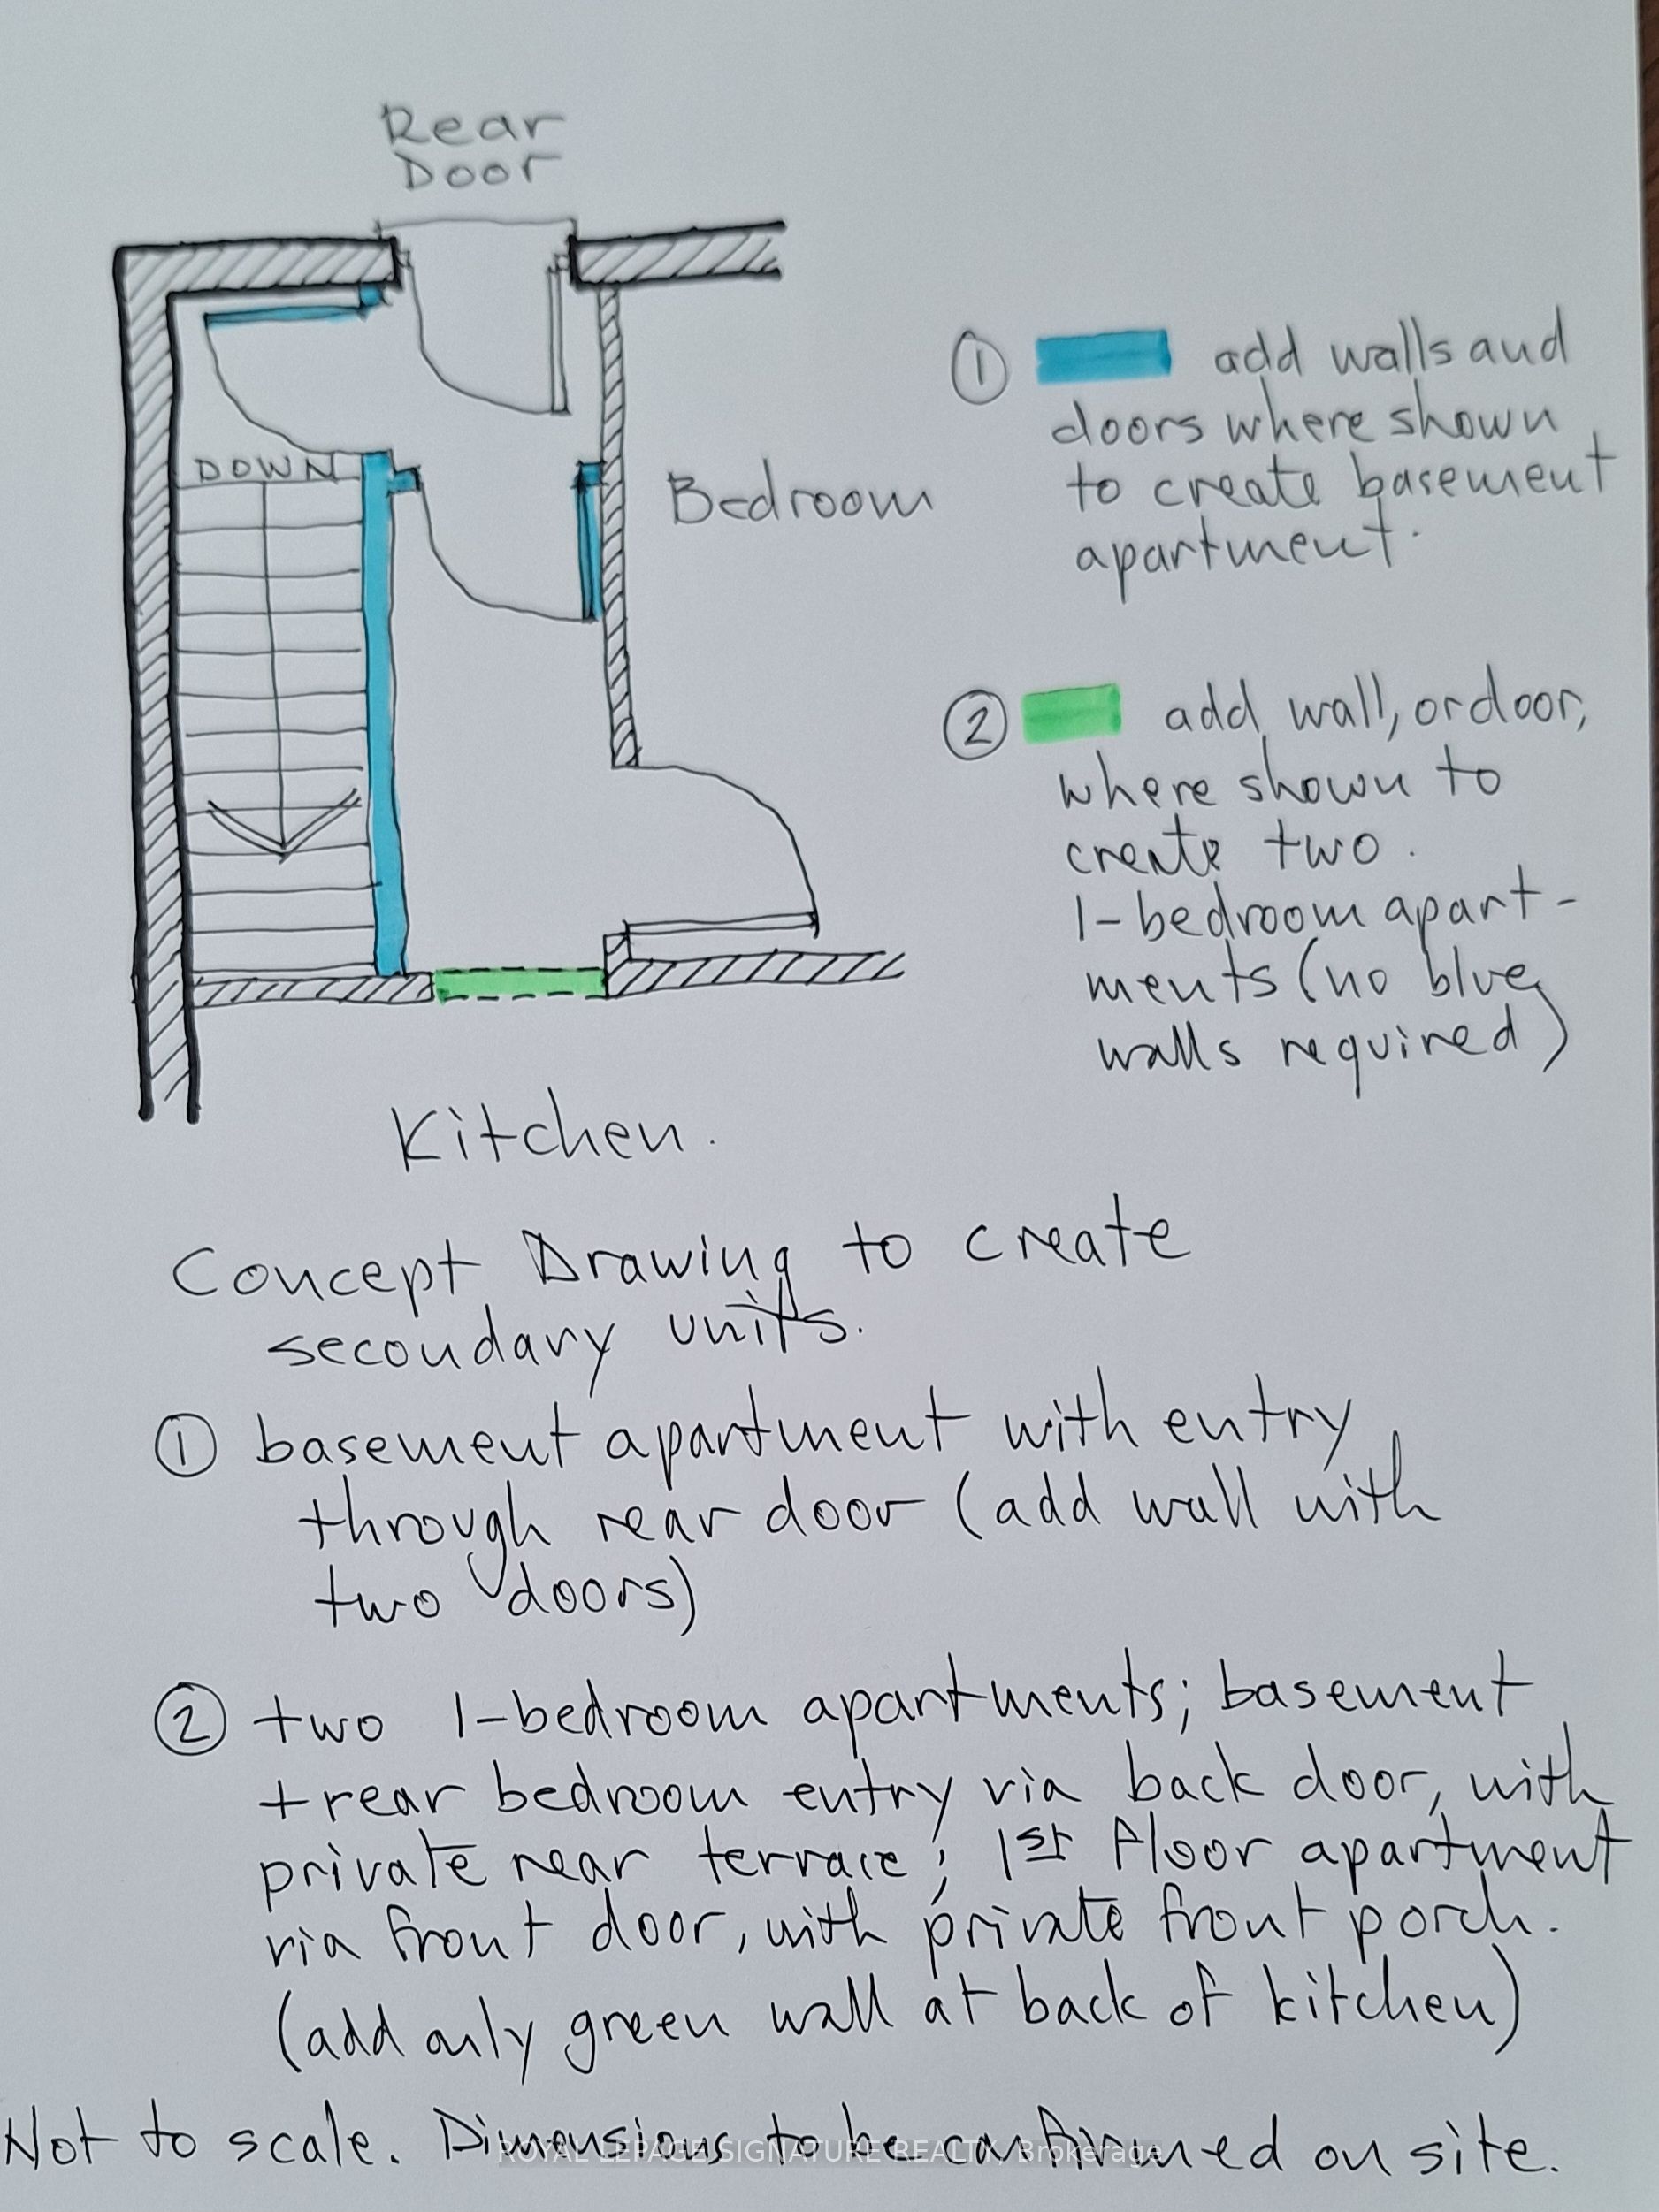 Rear
Door
① add walls and
doors where shown
to create basement
apartment.
DOWN
Bedroom
② add wall, or door,
where shown to
create two
1-bedroom apart-
ments (no blue
walls required)
Kitchen.
Concept Drawing to create
secondary units.
① basement apartment with entry
through rear door (add wall with
two doors)
② two 1-bedroom apartments; basement
+ rear bedroom entry via back door, with
private rear terrace; 1st floor apartment
via front door, with private front porch.
(add only green wall at back of kitchen)
Not to scale. Dimensions to be confirmed on site.
ROYAL LEPAGE SIGNATURE REALTY, Brokerage